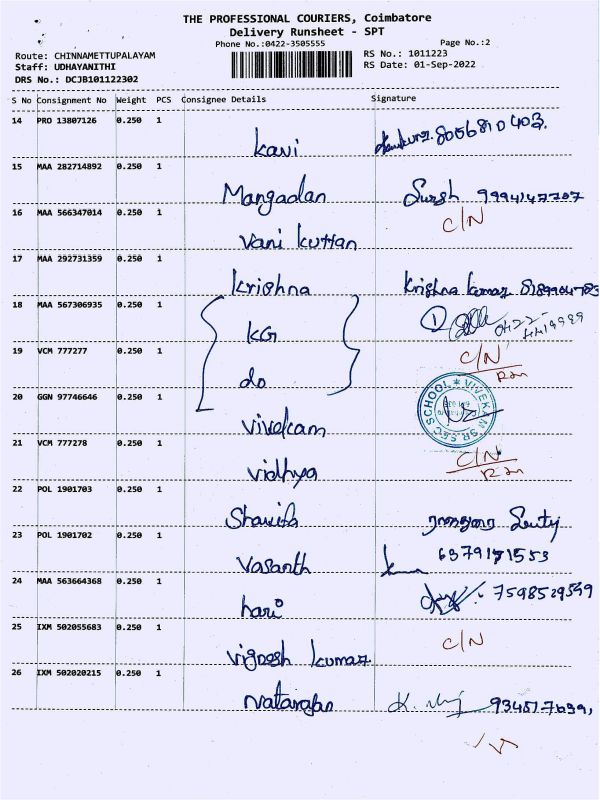 THE PROFESSIONAL COURIERS, Coimbatore
Delivery Runsheet - SPT
Phone No.:0422-3505555 Page No.:2
Route: CHINNAMETTUPALAYAM RS No.: 1011223
Staff: UDHAYANITHI RS Date: 01-Sep-2022
DRS No.: DCJB101122302
S No Consignment No Weight PCS Consignee Details Signature
14 PRO 13807126 0.250 1
kavi 8056810403.
15 MAA 282714892 0.250 1
Mangadan Suresh 9994147707
16 MAA 566347014 0.250 1 C/N
Vani kuttan
17 MAA 292731359 0.250 1
krishna krishna kumar
18 MAA 567306935 0.250 1 1
KG
19 VCM 777277 0.250 1 C/N
do
20 GGN 97746646 0.250 1 VIVEKAM SR.SEC SCHOOL
Vivekam
21 VCM 777278 0.250 1 C/N
vidhya
22 POL 1901703 0.250 1
23 POL 1901702 0.250 1
Vasanth
24 MAA 563664368 0.250 1 7598529549
hari
25 IXM 502055683 0.250 1 C/N
vignesh kumar
26 IXM 502020215 0.250 1